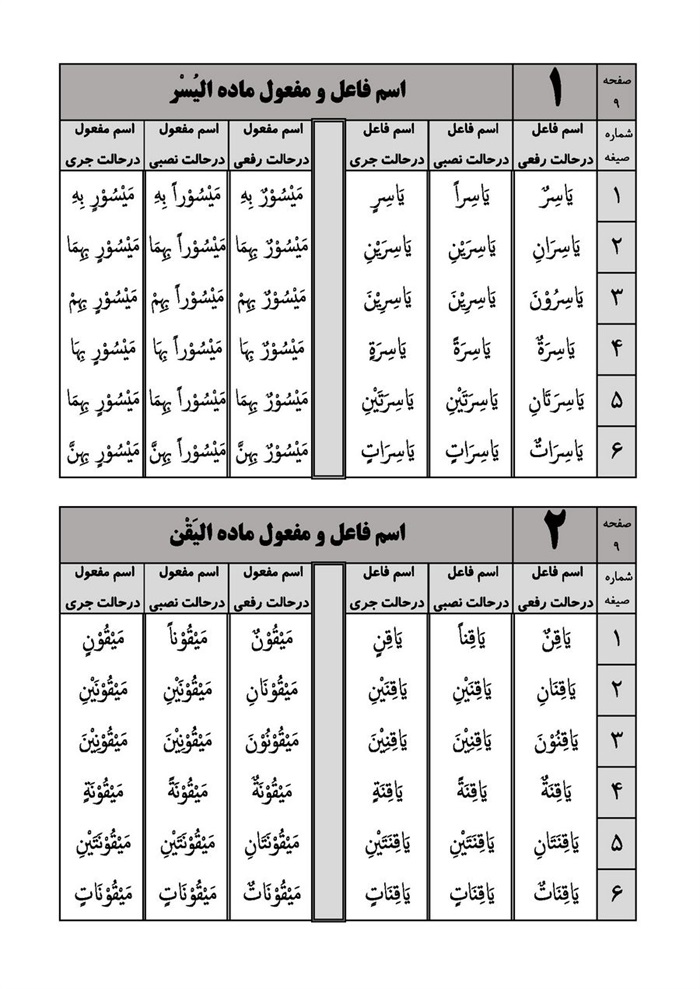 صفحه ۹ ۱ اسم فاعل و مفعول ماده الیُسْر
شماره صیغه اسم فاعل درحالت رفعی اسم فاعل درحالت نصبی اسم فاعل درحالت جری اسم مفعول درحالت رفعی اسم مفعول درحالت نصبی اسم مفعول درحالت جری
۱ یَاسِرٌ یَاسِراً یَاسِرٍ مَیْسُوْرٌ بِهِ مَیْسُوْراً بِهِ مَیْسُوْرٍ بِهِ
۲ یَاسِرَانِ یَاسِرَیْنِ یَاسِرَیْنِ مَیْسُوْرٌ بِهِمَا مَیْسُوْراً بِهِمَا مَیْسُوْرٍ بِهِمَا
۳ یَاسِرُوْنَ یَاسِرِیْنَ یَاسِرِیْنَ مَیْسُوْرٌ بِهِمْ مَیْسُوْراً بِهِمْ مَیْسُوْرٍ بِهِمْ
۴ یَاسِرَةٌ یَاسِرَةً یَاسِرَةٍ مَیْسُوْرٌ بِهَا مَیْسُوْراً بِهَا مَیْسُوْرٍ بِهَا
۵ یَاسِرَتَانِ یَاسِرَتَیْنِ یَاسِرَتَیْنِ مَیْسُوْرٌ بِهِمَا مَیْسُوْراً بِهِمَا مَیْسُوْرٍ بِهِمَا
۶ یَاسِرَاتٌ یَاسِرَاتٍ یَاسِرَاتٍ مَیْسُوْرٌ بِهِنَّ مَیْسُوْراً بِهِنَّ مَیْسُوْرٍ بِهِنَّ
صفحه ۹ ۲ اسم فاعل و مفعول ماده الیَقْن
شماره صیغه اسم فاعل درحالت رفعی اسم فاعل درحالت نصبی اسم فاعل درحالت جری اسم مفعول درحالت رفعی اسم مفعول درحالت نصبی اسم مفعول درحالت جری
۱ یَاقِنٌ یَاقِناً یَاقِنٍ مَیْقُوْنٌ مَیْقُوْناً مَیْقُوْنٍ
۲ یَاقِنَانِ یَاقِنَیْنِ یَاقِنَیْنِ مَیْقُوْنَانِ مَیْقُوْنَیْنِ مَیْقُوْنَیْنِ
۳ یَاقِنُوْنَ یَاقِنِیْنَ یَاقِنِیْنَ مَیْقُوْنُوْنَ مَیْقُوْنِیْنَ مَیْقُوْنِیْنَ
۴ یَاقِنَةٌ یَاقِنَةً یَاقِنَةٍ مَیْقُوْنَةٌ مَیْقُوْنَةً مَیْقُوْنَةٍ
۵ یَاقِنَتَانِ یَاقِنَتَیْنِ یَاقِنَتَیْنِ مَیْقُوْنَتَانِ مَیْقُوْنَتَیْنِ مَیْقُوْنَتَیْنِ
۶ یَاقِنَاتٌ یَاقِنَاتٍ یَاقِنَاتٍ مَیْقُوْنَاتٌ مَیْقُوْنَاتٍ مَیْقُوْنَاتٍ